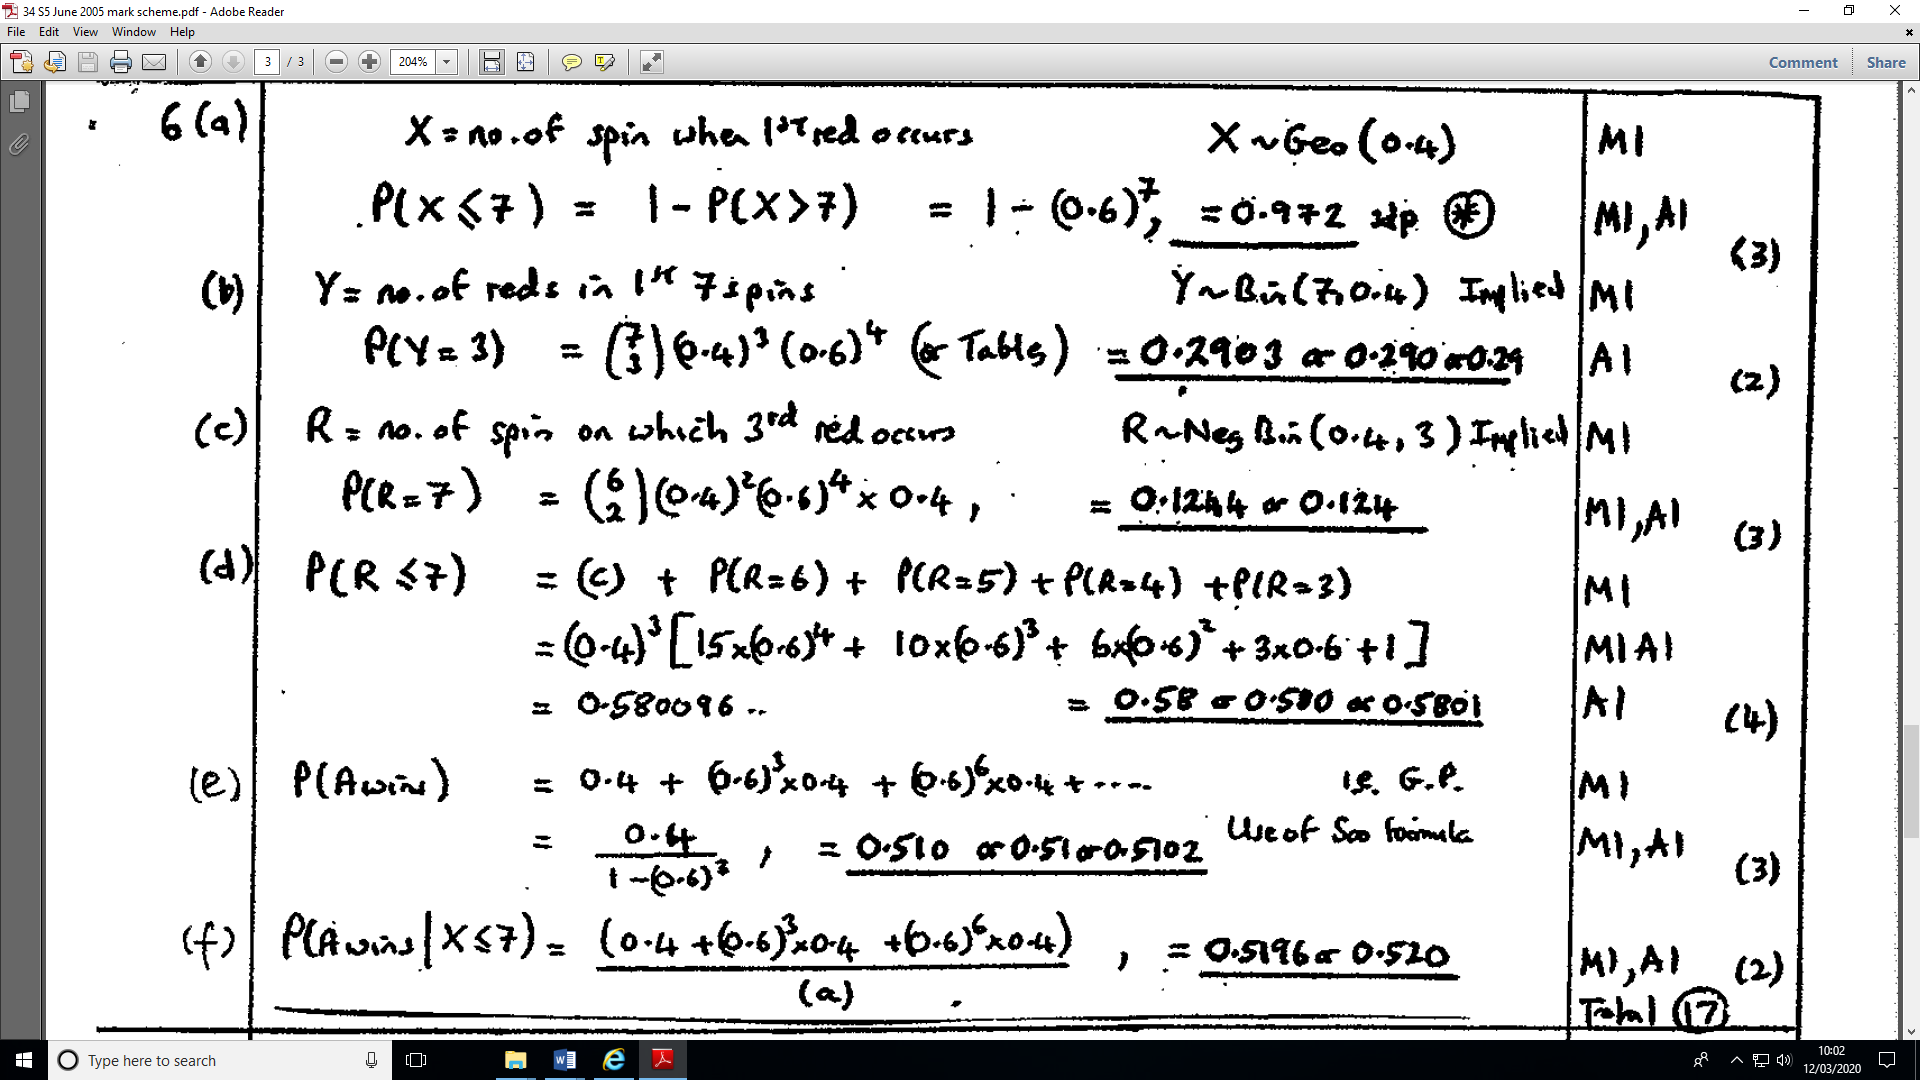 34 S5 June 2005 mark scheme.pdf - Adobe Reader
File Edit View Window Help
3 / 3 204% Comment Share
6(a) X = no. of spin when 1st red occurs X ~ Geo(0.4) M1
P(X ≤ 7) = 1 - P(X > 7) = 1 - (0.6)^7, = 0.972 3dp (*) M1, A1
(3)
(b) Y = no. of reds in 1st 7 spins Y ~ Bin(7, 0.4) Implied M1
P(Y = 3) = (7 3)(0.4)^3 (0.6)^4 (or Tables) = 0.2903 or 0.290 or 0.29 A1
(2)
(c) R = no. of spin on which 3rd red occurs R ~ Neg Bin(0.4, 3) Implied M1
P(R = 7) = (6 2)(0.4)^2(0.6)^4 × 0.4, = 0.1244 or 0.124 M1, A1
(3)
(d) P(R ≤ 7) = (c) + P(R=6) + P(R=5) + P(R=4) + P(R=3) M1
= (0.4)^3 [15×(0.6)^4 + 10×(0.6)^3 + 6×(0.6)^2 + 3×0.6 + 1] M1 A1
= 0.580096.. = 0.58 or 0.580 or 0.5801 A1 (4)
(e) P(A wins) = 0.4 + (0.6)^3×0.4 + (0.6)^6×0.4 + .... i.e. G.P. M1
= 0.4 / 1-(0.6)^3, = 0.510 or 0.51 or 0.5102 Use of S∞ formula M1, A1
(3)
(f) P(A wins | X ≤ 7) = (0.4 + (0.6)^3×0.4 + (0.6)^6×0.4) / (a), = 0.5196 or 0.520 M1, A1 (2)
Total (17)
Type here to search
10:02
12/03/2020